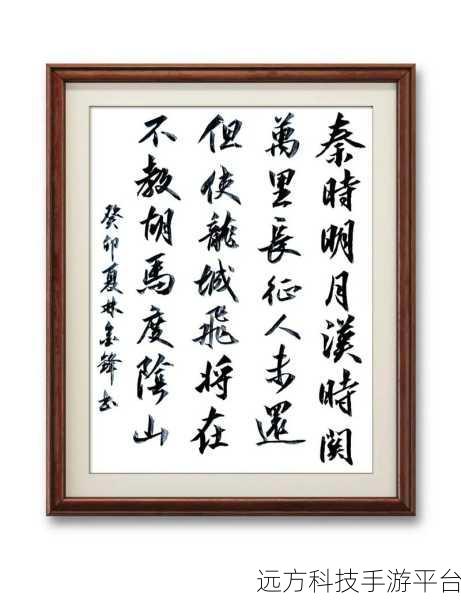 秦時明月漢時関
萬里長征人未還
但使龍城飛将在
不教胡馬度陰山
癸卯夏林金鋒书
远方科技手游平台